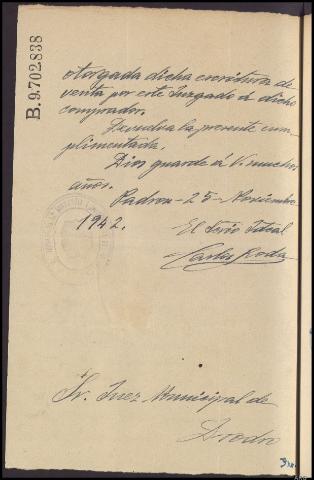 B.9.702838
otorgada dicha escritura de
venta por este Juzgado á dicho
comprador.
Devuelva la presente cum-
plimentada.
Dios guarde á V. muchos
años.
Padron - 25 - Noviembre
1942.
El
Carlos Roda
Sr. Juez Municipal de